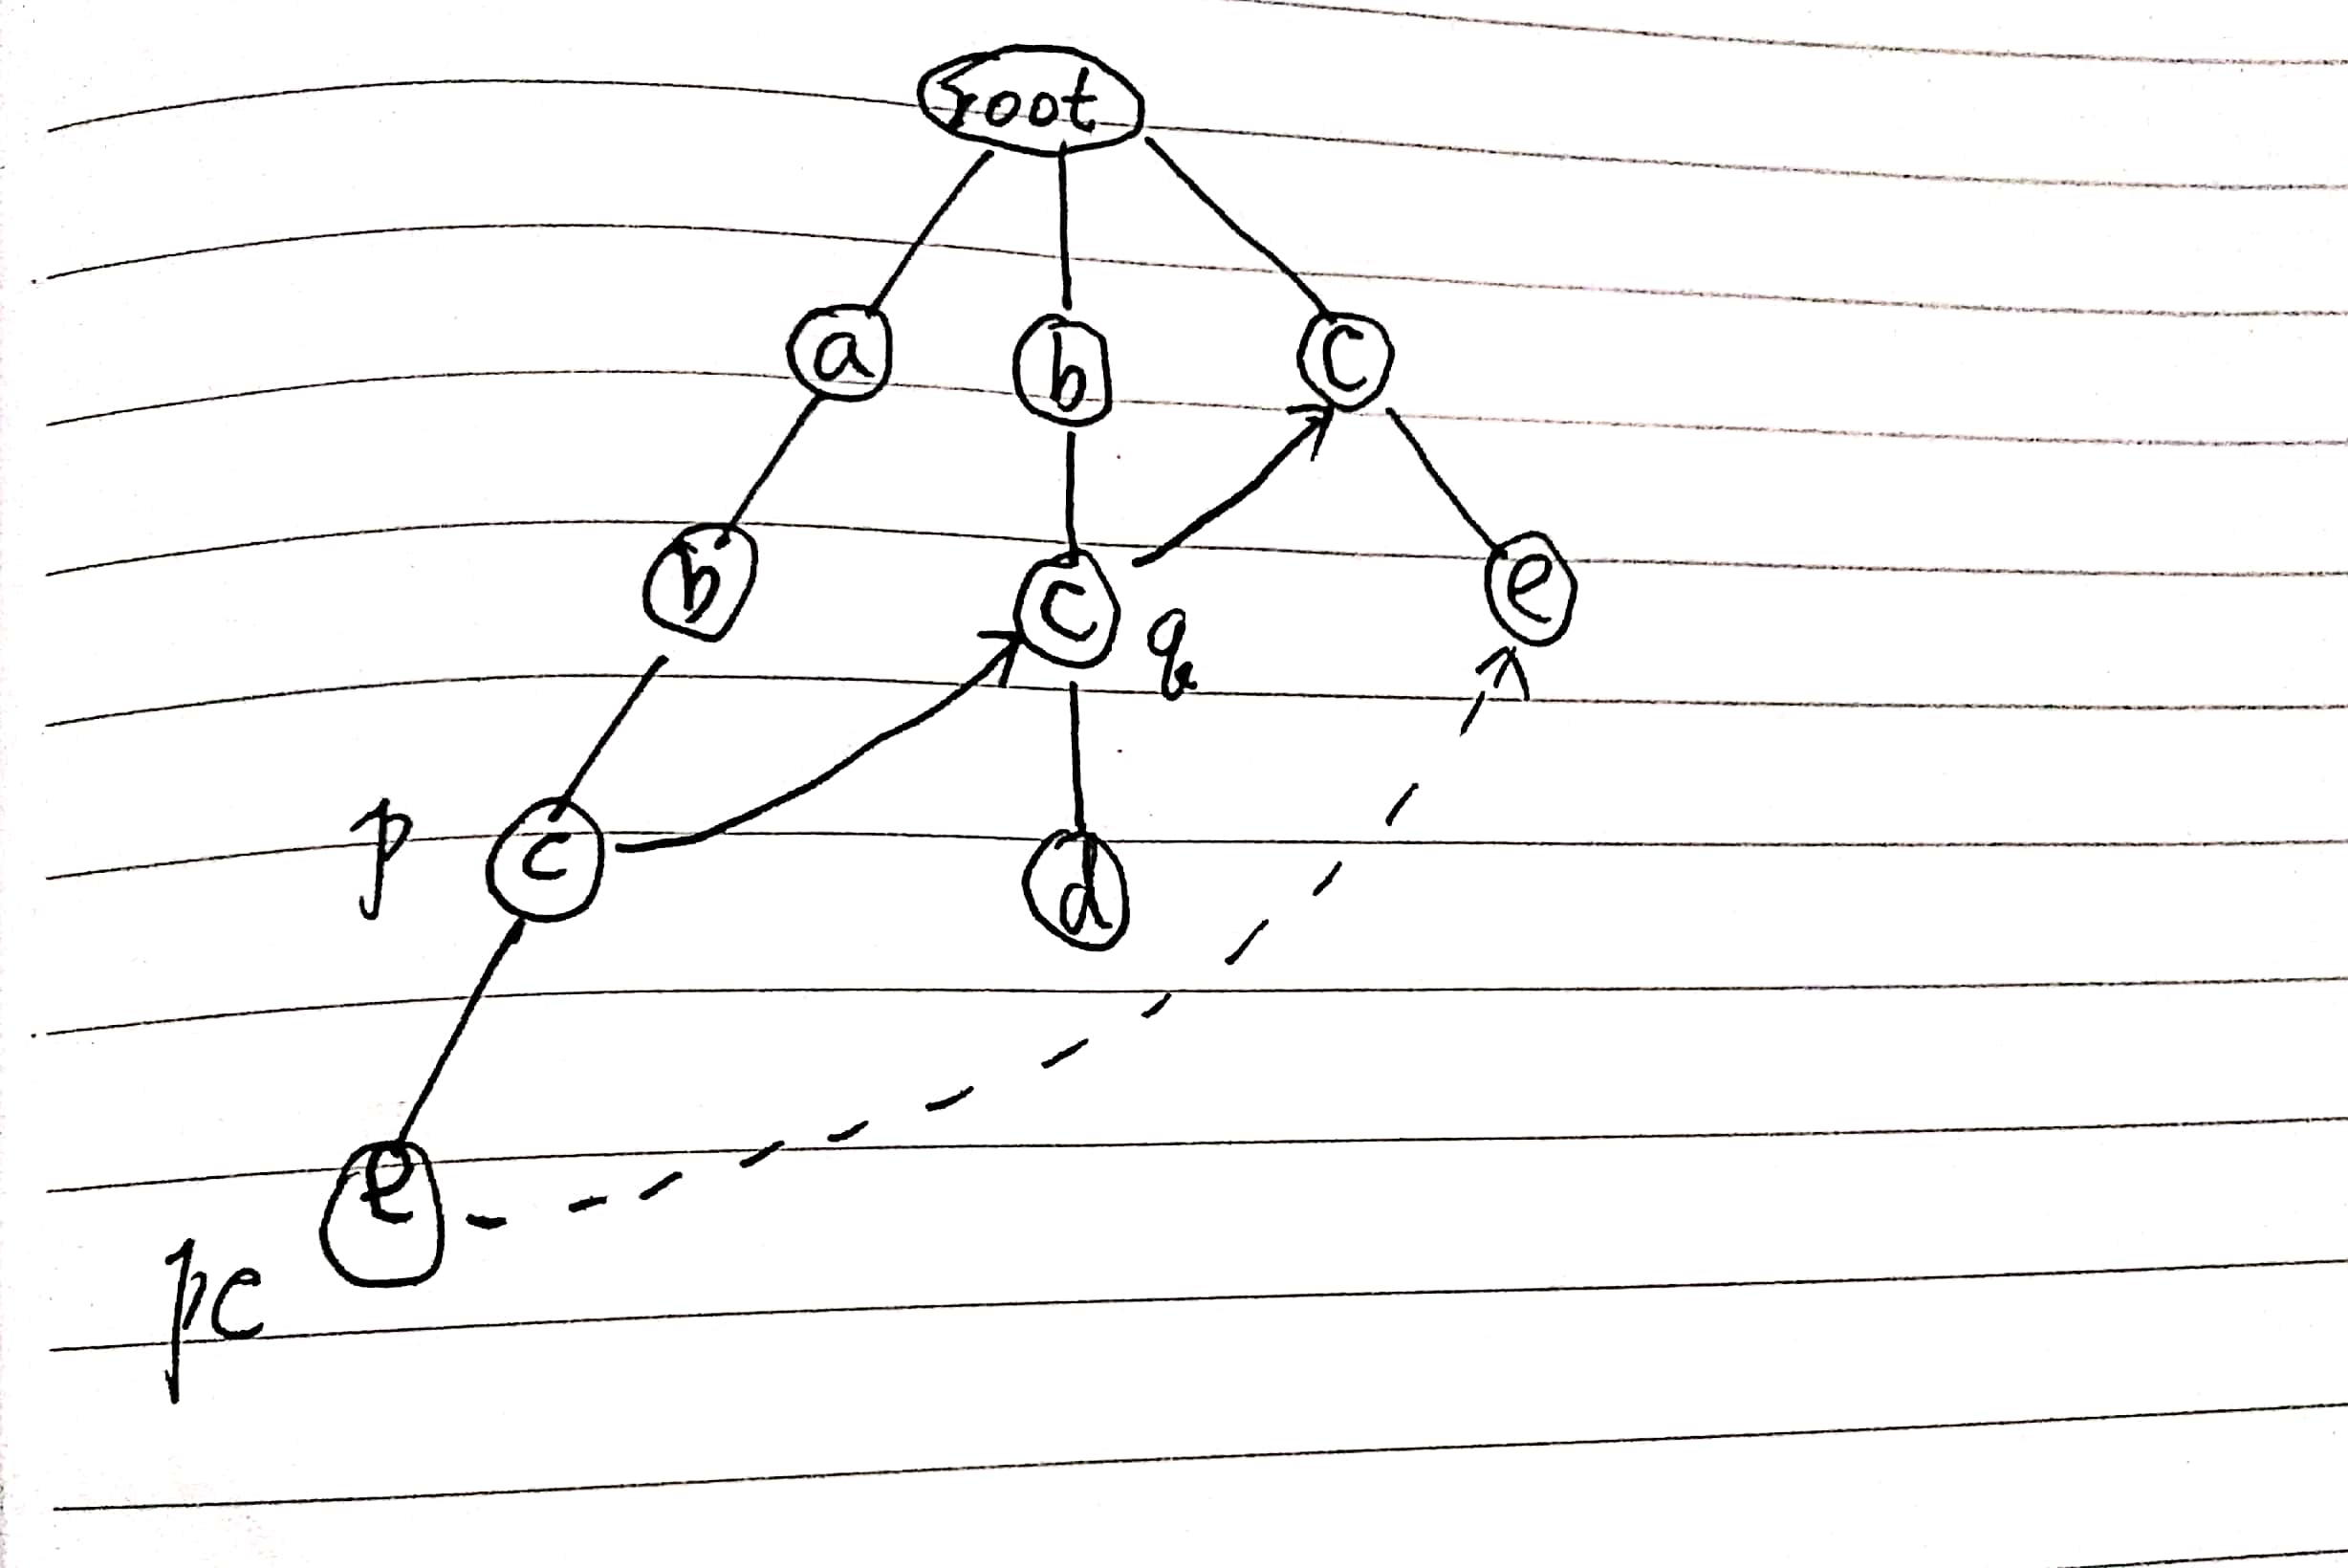 root
a b c
b c q e
p c d
e
pc